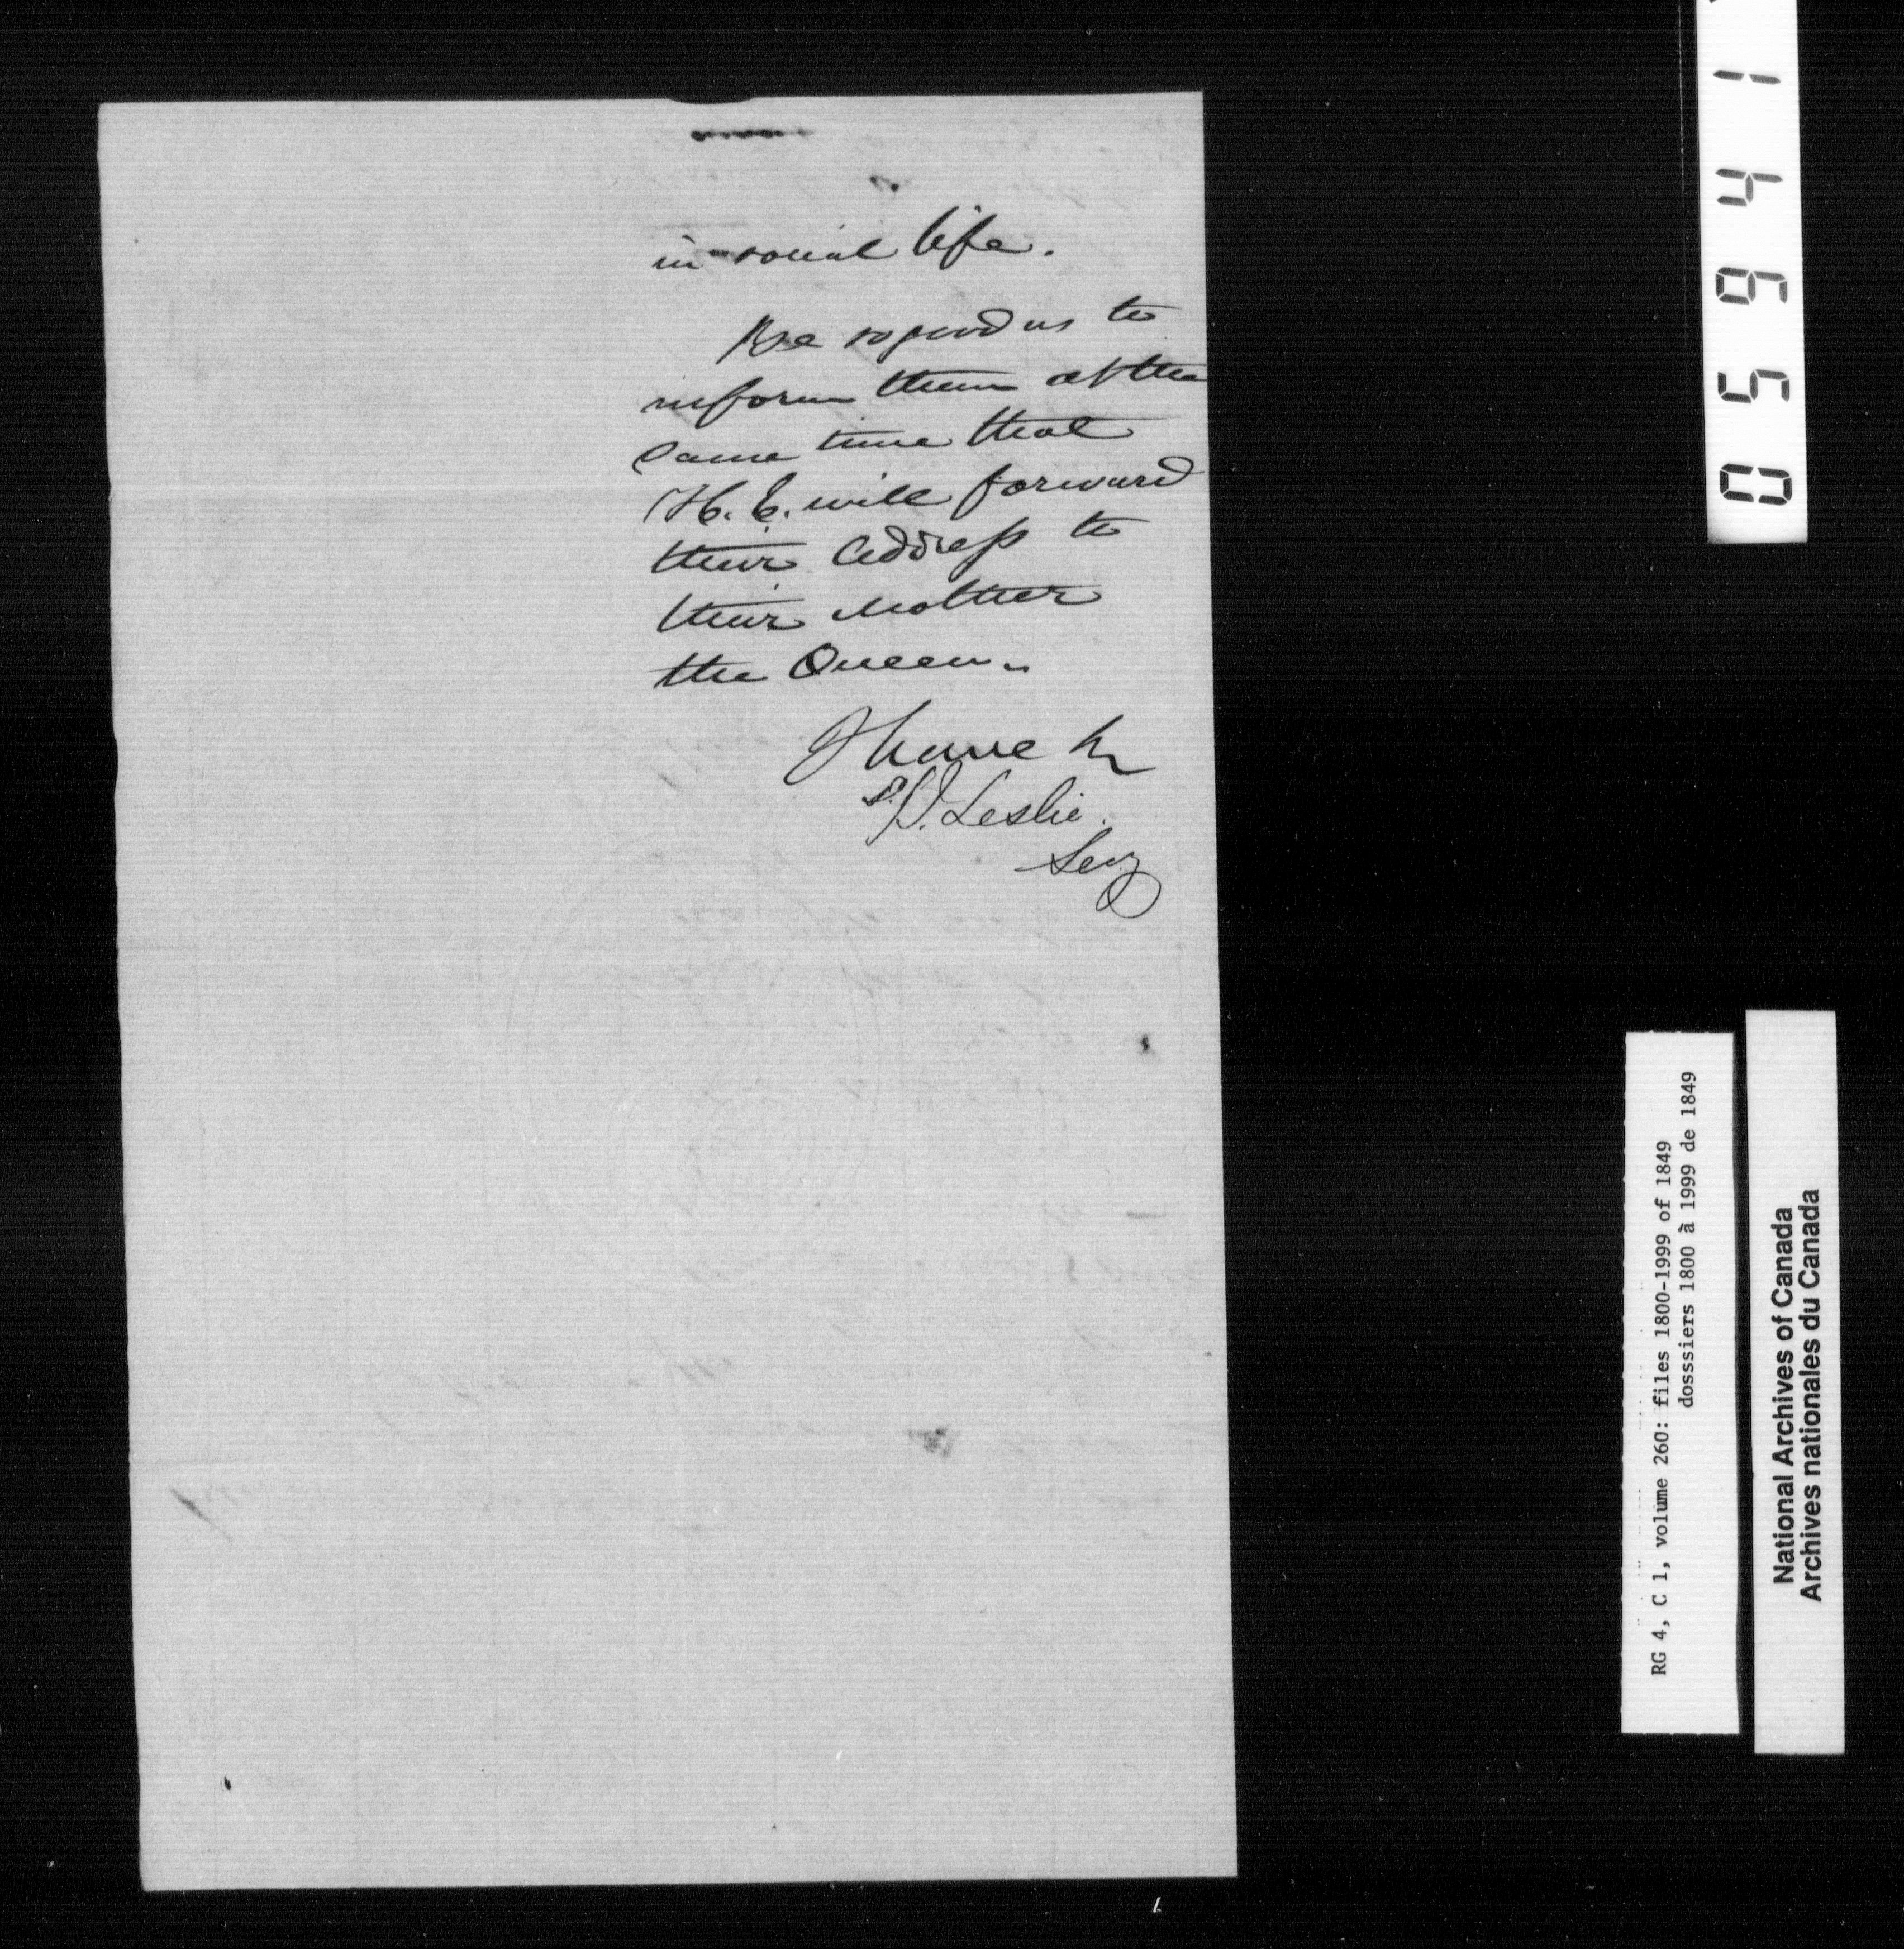 in social life.
Be so good as to
inform them at the
same time that
H. E. will forward
their Address to
their Mother
the Queen.
I have &c
J. Leslie.
Secy
05941
RG 4, C 1, volume 260: files 1800-1999 of 1849
dosssiers 1800 à 1999 de 1849
National Archives of Canada
Archives nationales du Canada